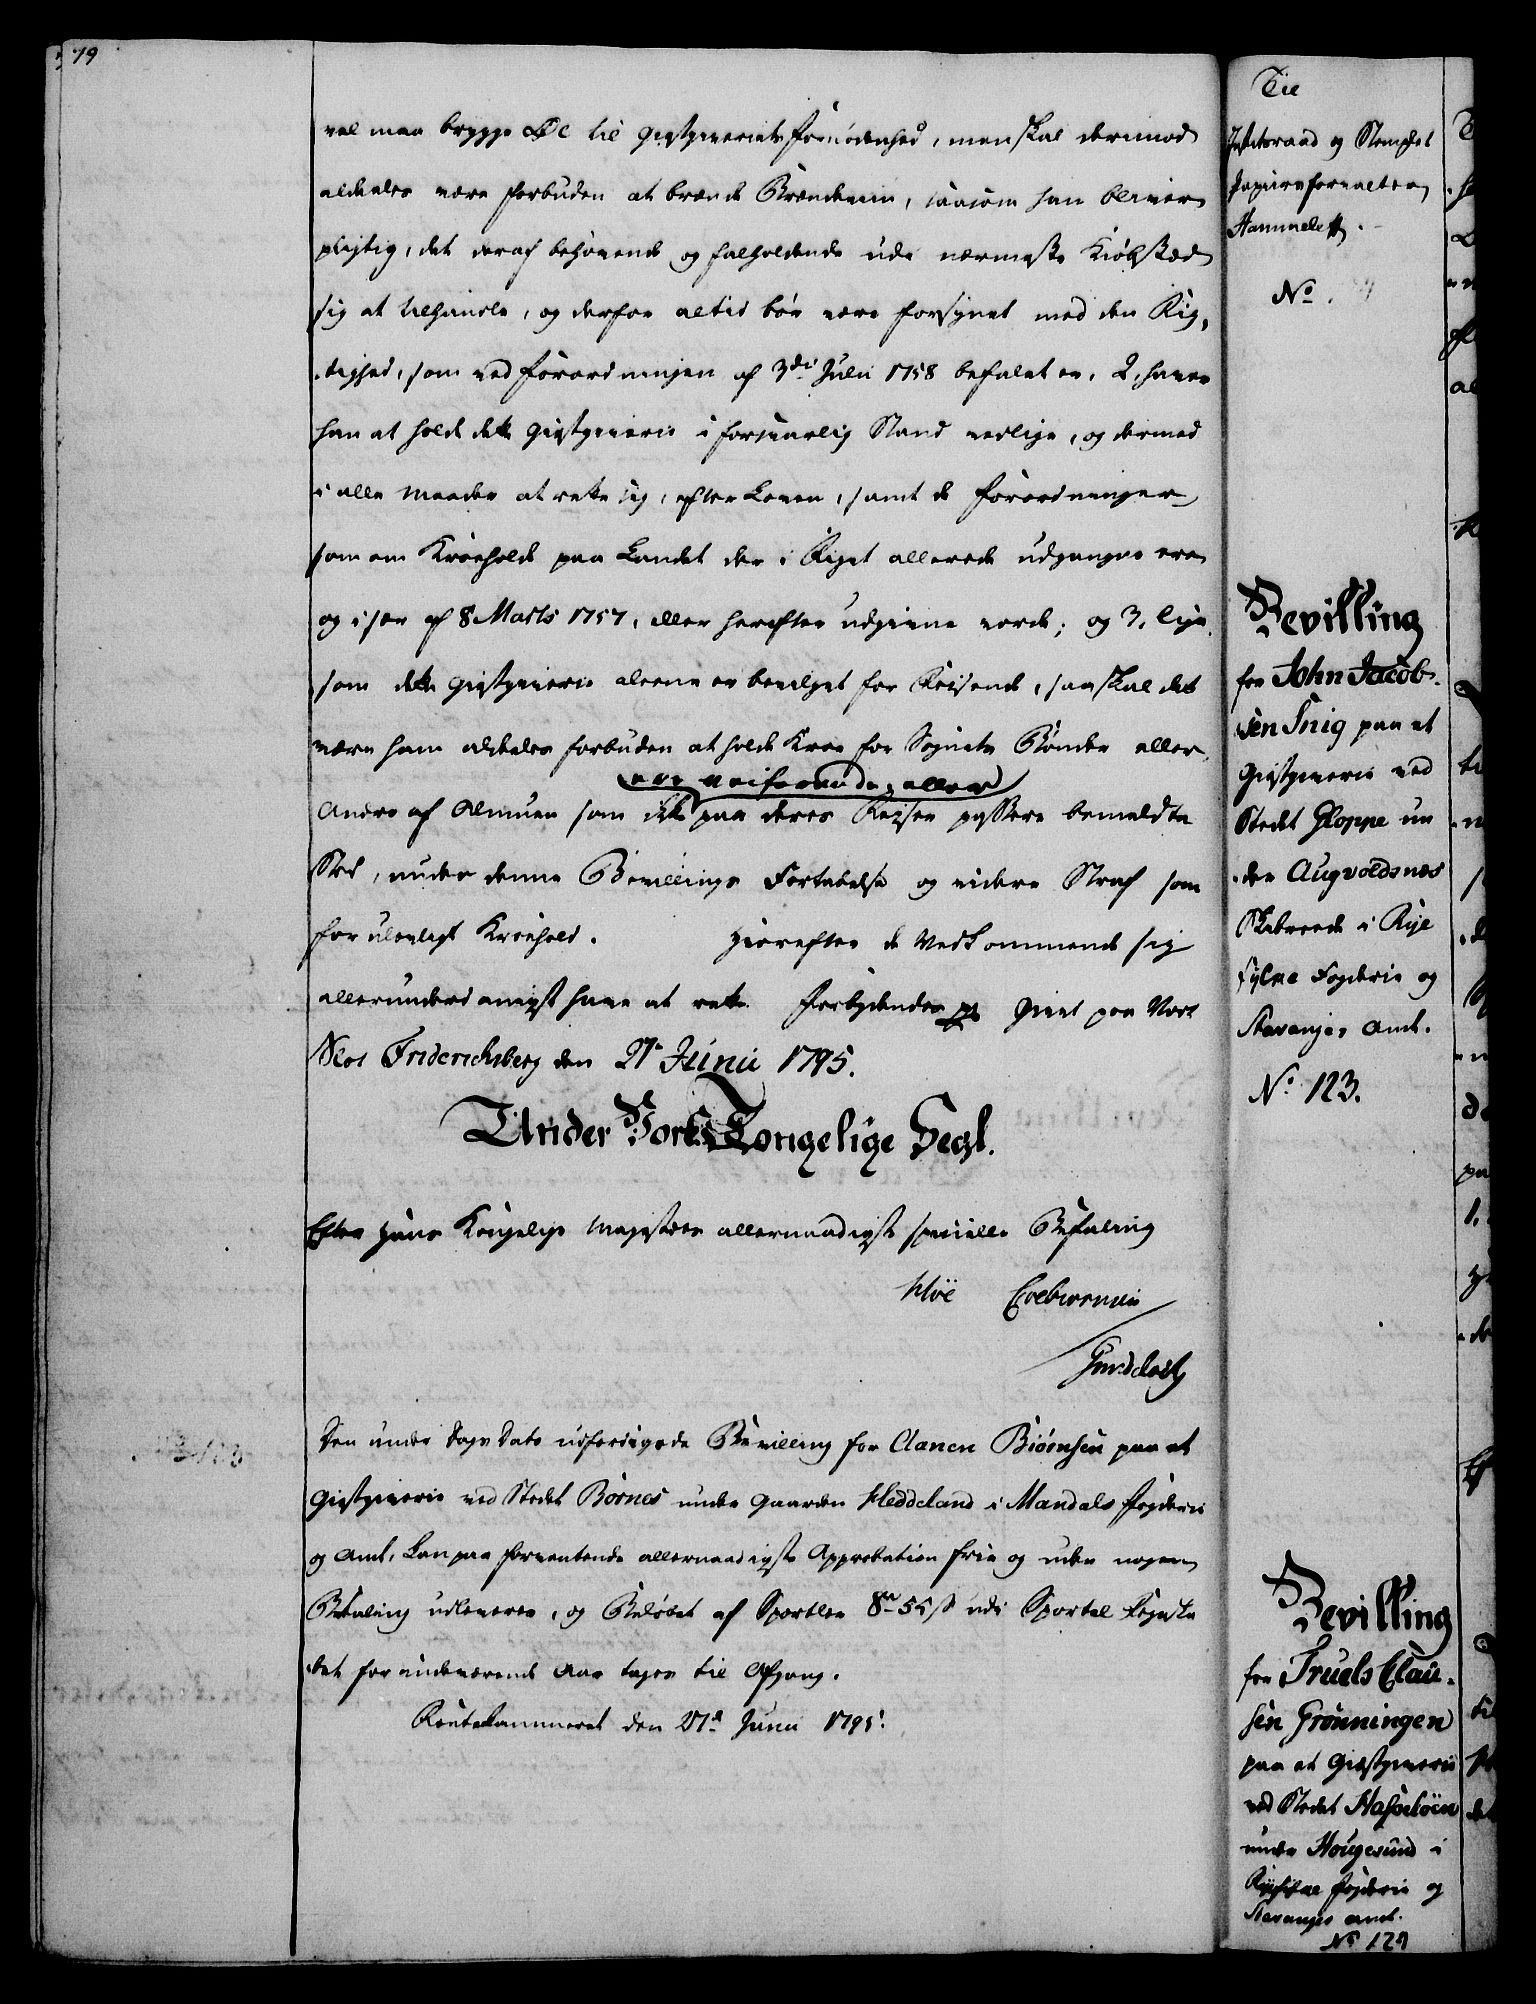 79
vel maa brygge Øl til Giestgiveriets Fornødenhed, men skal derimod
aldeles være forbuden at brænde Brændeviin, saasom han bliver
pligtig, det deraf behøvende og falholdende udi nærmeste Kiøbstæd
sig at tilhandle, og derfor altid bør være forsynet med den Rig,
-tighed, som ved Forordningen af 3die Julii 1758 befalet er. 2, haver
han at holde dette Giestgiverie i forsvarlig Stand vedlige, og dermed
i alle Maader at rette sig, efter Loven, samt de Forordninger
som om Kroehold paa Landet der i Riget allerede udgangne ere
og især af 8 Marts 1757, eller herefter udgivne vorde; og 3, lige
som dette Giestgiverie alene er bevilget for Reisende, saa skal det
være ham aldeles forbuden at holde Kroe for Sognets Bønder eller
ere veifarende, eller
Andre af Almuen som ikke paa deres Reiser passere bemeldte
Sted, under denne Bevillings Fortabelse og videre Straf som
for ulovligt Kroehold. Hvorefter de Vedkommende sig
allerunderdanigst have at rette. Forbydendes pp Givet paa Vort
Slot Friderichsberg den 27 Junii 1795.
Under Vort Kongelige Segl.
Efter Hans Kongelige Majestæts allernaadigste specielle Befaling
Høe Colbiørnsen
Den under Dags Dato udfærdigede Bevilling for Aanen Biørnsen paa et
Giestgiverie ved Stedet Børnes under Gaarden Heddeland i Mandals Fogderie
og Amt, kan paa forventende allernaadigste Approbation frie og uden nogen
Betaling udleveres, og Beløbet af Sportler 8 rd 55 s udi Sportel Registe
-ret for indeværende Aar tages til Afgang.
Rentekammeret den 27de Junii 1795.
Til
Justitsraad og Stemplet
Papiirsforvalter
Hammeleff.
No
Bevilling
for John Jacob-
sen Snig paa et
Giestgiverie ved
Stedet Gloppe un
-der Augvoldsnæs
Skibreede i Rye
fylke Fogderie og
Stavanger Amt.
No. 123.
Bevilling
for Truels Clau-
sen Grønningen
paa et Giestgiverie
ved Stedet Hasseløen
under Hougesund i
Ryefylke Fogderie og
Stavanger Amt.
No 124